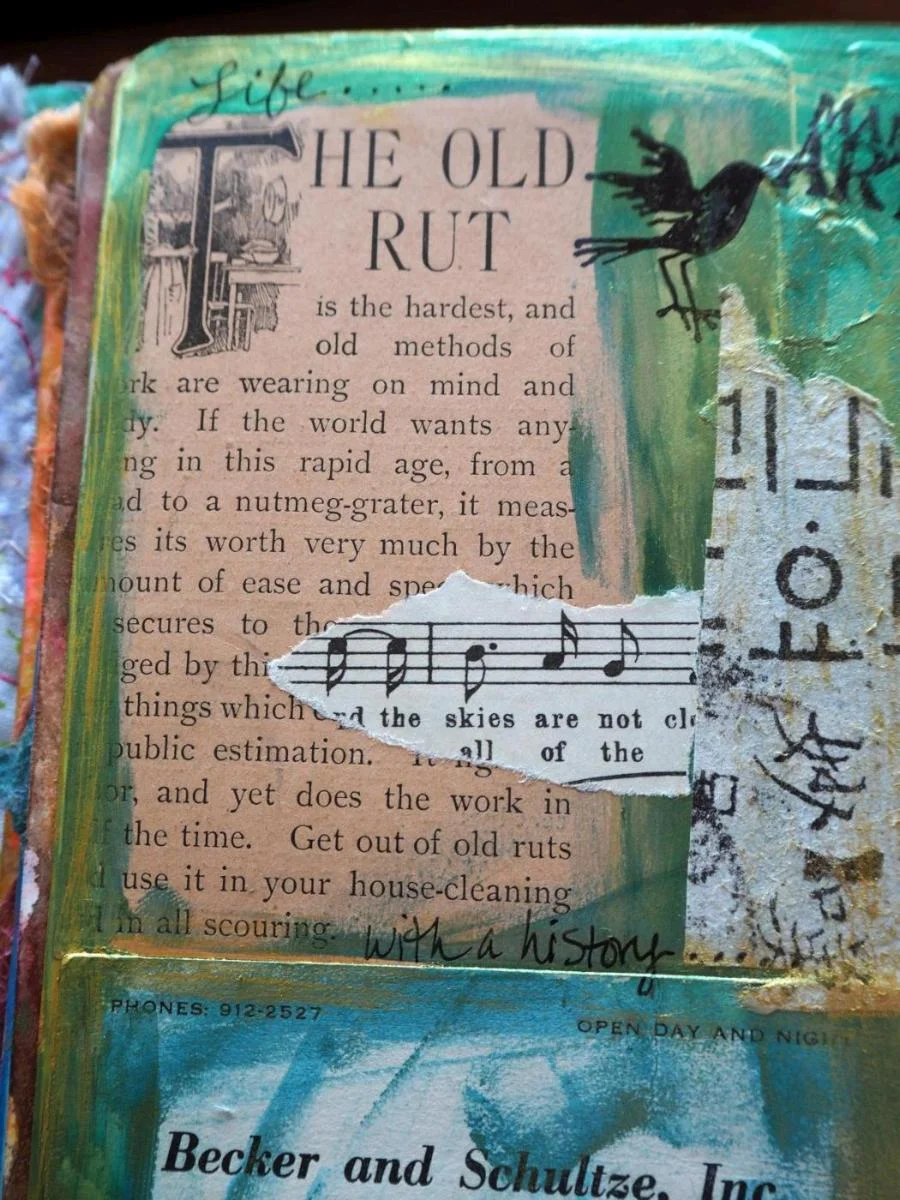 Life.....
THE OLD
RUT
is the hardest, and
old methods of
ork are wearing on mind and
dy. If the world wants any-
ng in this rapid age, from a
ad to a nutmeg-grater, it meas-
res its worth very much by the
mount of ease and spee which
secures to the
ged by thi
things which
and the skies are not clo
public estimation. It
all of the
or, and yet does the work in
f the time. Get out of old ruts
d use it in your house-cleaning
d in all scouring.
with a history
ART
FO.
PHONES: 912-2527
OPEN DAY AND NIGH
Becker and Schultze, Inc